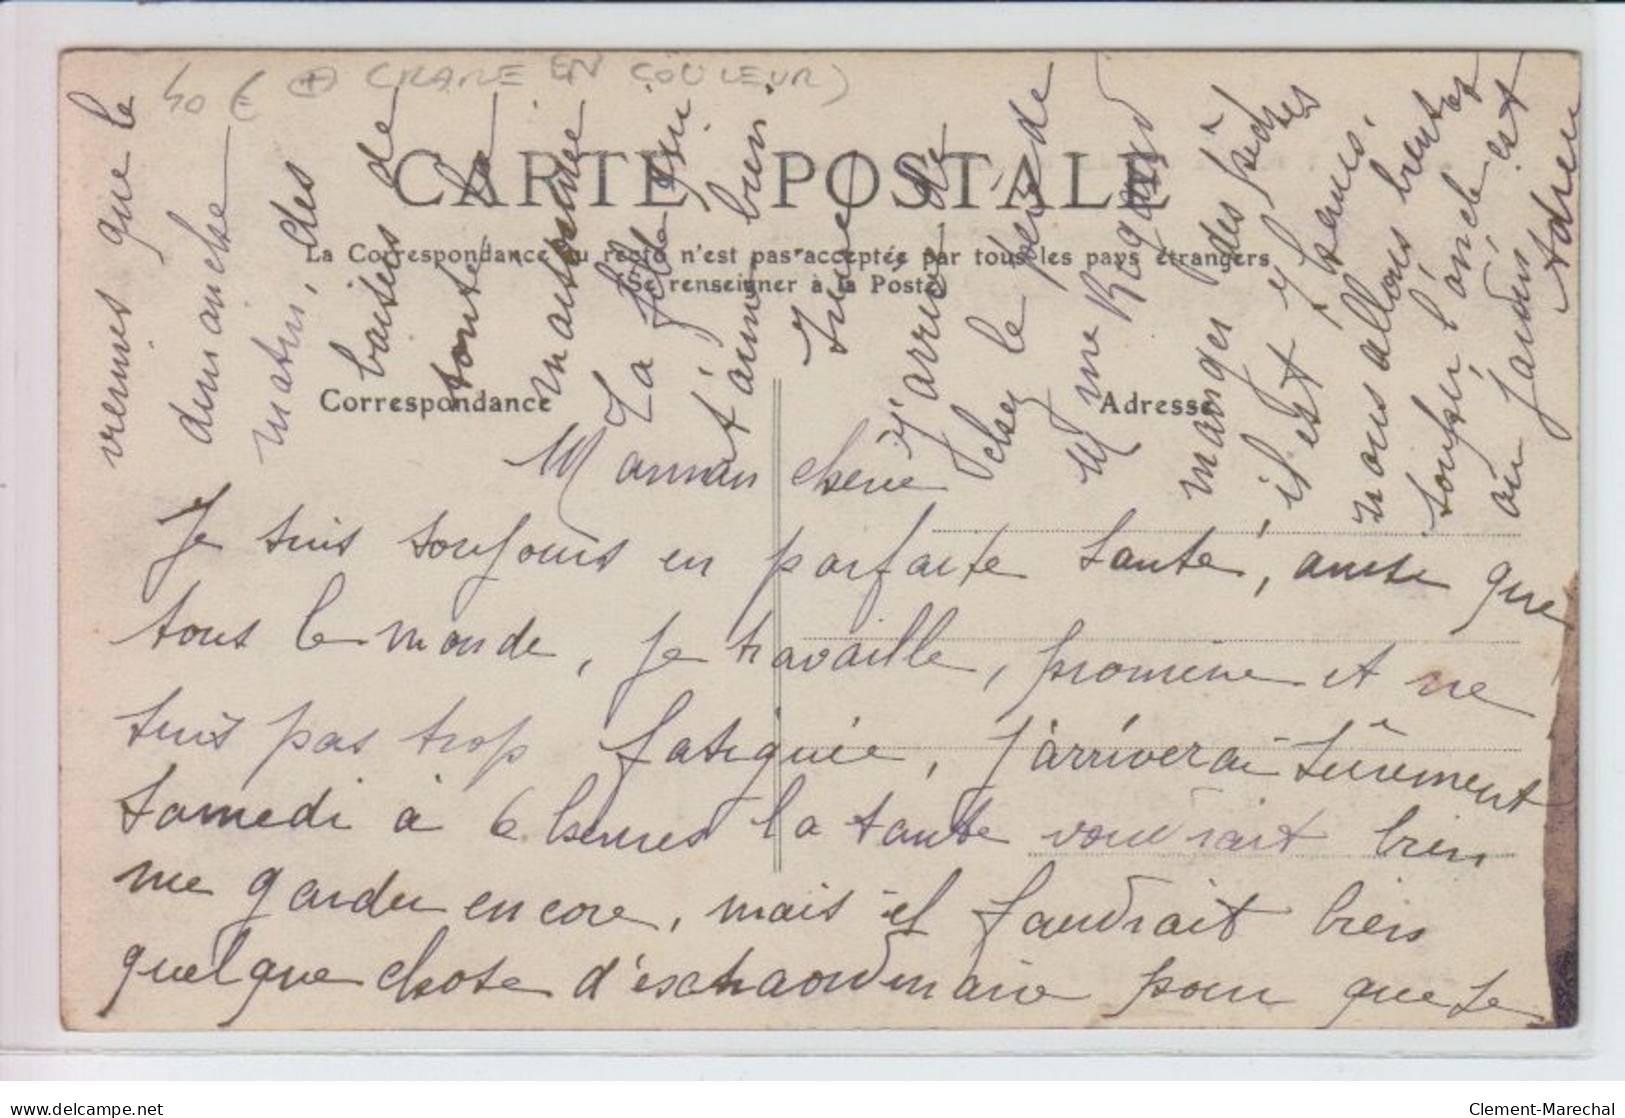 40 € (+) (RARE EN COULEUR)
CARTE POSTALE
La Correspondance au recto n'est pas acceptée par tous les pays étrangers
(Se renseigner à la Poste)
Correspondance
Adresse
Maman chérie
Je suis toujours en parfaite santé, ainsi que
tous le monde, je travaille, promène et ne
suis pas trop fatiguée, j'arriverai sûrement
samedi à 6 heures la tante voudrait bien
me garder encore, mais il faudrait bien
quelque chose d'extraordinaire pour que je
vienne que le
dimanche
matin, des
baisers de
toute la
La fille qui
t'aime bien
J'arrive de
chez le père de
Mme Rigaud
manger des pêches
il est 7 heures.
nous allons rentrer
souper, l'oncle est
au jardin
Clement-Marechal
delcampe.net